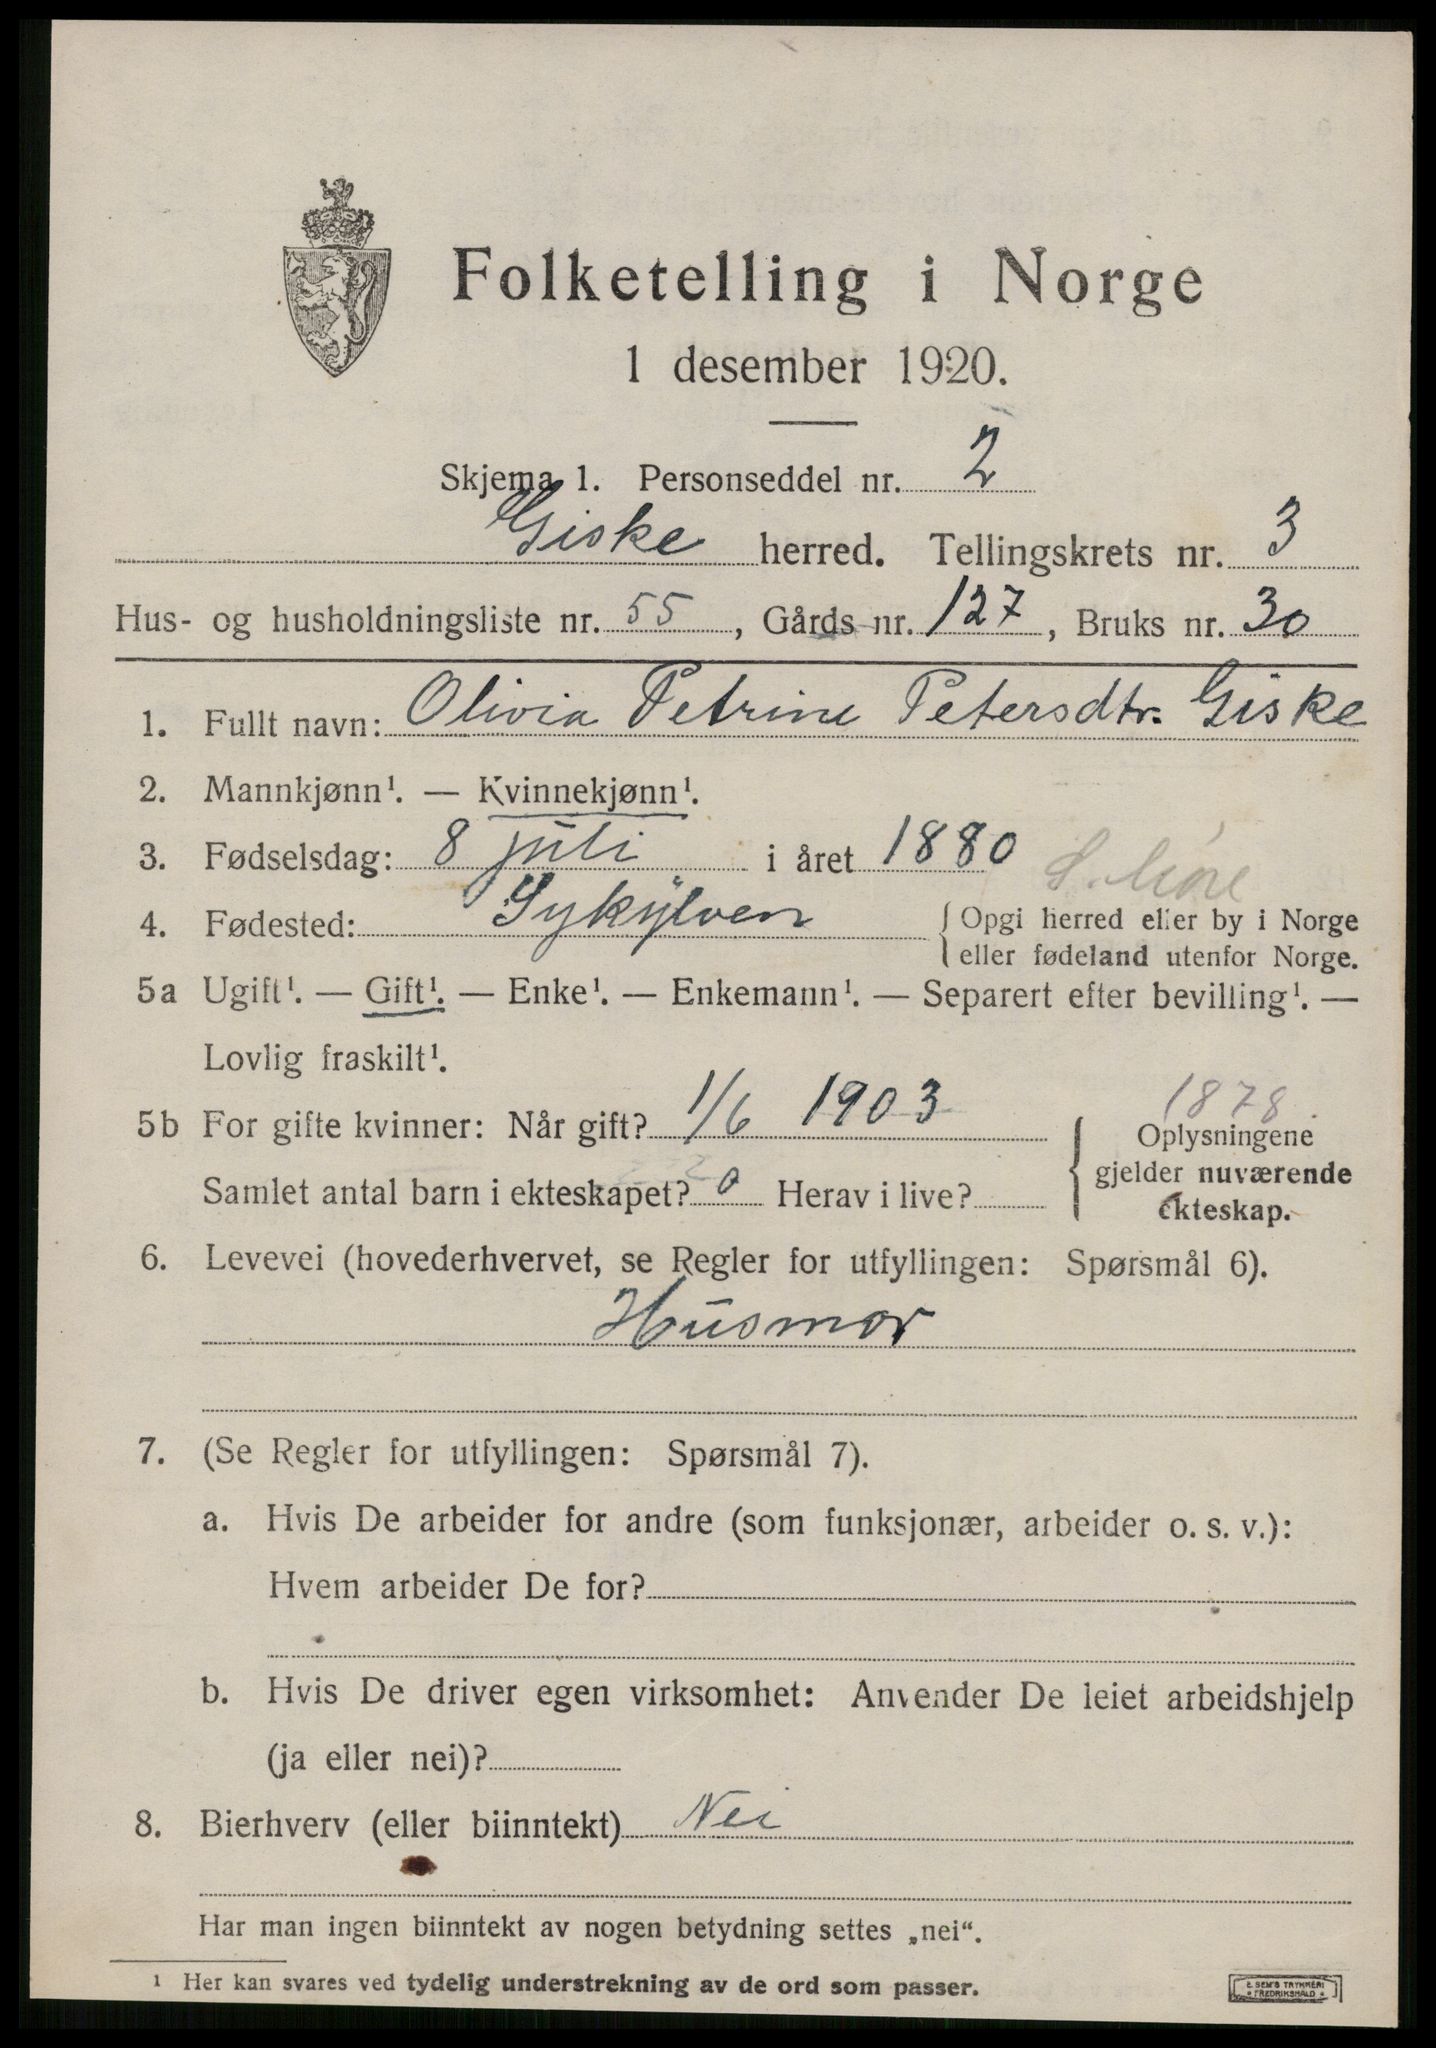 Folketelling i Norge
1 desember 1920.
Skjema 1. Personseddel nr. 2
Giske herred. Tellingskrets nr. 3
Hus- og husholdningsliste nr. 55, Gårds nr. 127, Bruks nr. 30
1. Fullt navn: Olivia Petrine Petersdtr. Giske
2. Mannkjønn¹. — Kvinnekjønn¹.
3. Fødselsdag: 8 juli i året 1880
S. Møre
4. Fødested: Sykylven { Opgi herred eller by i Norge
eller fødeland utenfor Norge.
5a Ugift¹. — Gift¹. — Enke¹. — Enkemann¹. — Separert efter bevilling¹. —
Lovlig fraskilt¹.
1878
5b For gifte kvinner: Når gift? 1/6 1903 { Oplysningene
gjelder nuværende
ekteskap.
Samlet antal barn i ekteskapet? 0 Herav i live?
6. Levevei (hovederhvervet, se Regler for utfyllingen: Spørsmål 6).
Husmor
7. (Se Regler for utfyllingen: Spørsmål 7).
a. Hvis De arbeider for andre (som funksjonær, arbeider o. s. v.):
Hvem arbeider De for?
b. Hvis De driver egen virksomhet: Anvender De leiet arbeidshjelp
(ja eller nei)?
8. Bierhverv (eller biinntekt) Nei
Har man ingen biinntekt av nogen betydning settes „nei“.
¹ Her kan svares ved tydelig understrekning av de ord som passer.
E. SEM'S TRYKKERI
FREDRIKSHALD